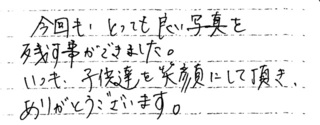 今回も、とっても良い写真を
残す事ができました。
いつも、子供達を笑顔にして頂き、
ありがとうございます。